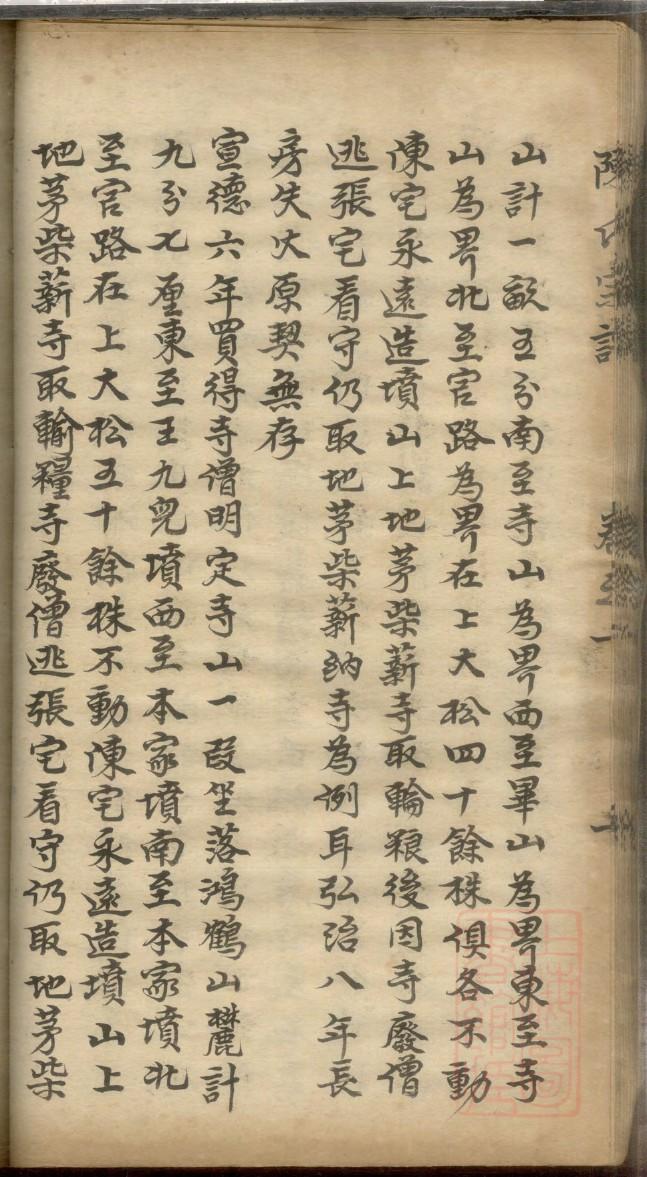 山計一畝五分南至寺山為畀西至畢山為畀東至寺
山為畀北至官路為畀在上大松四十餘株俱各不動
陳宅永遠造墳山上地茅柴薪寺取輪粮後因寺廢僧
逃張宅看守仍取地茅柴薪納寺為例耳弘治八年長
房失火原契無存
宣德六年買得寺僧明定寺山一段坐落鴻鶴山麓計
九分七厘東至王九兒墳西至本家墳南至本家墳北
至官路在上大松五十餘株不動陳宅永遠造墳山上
地茅柴薪寺取輸糧寺廢僧逃張宅看守仍取地茅柴